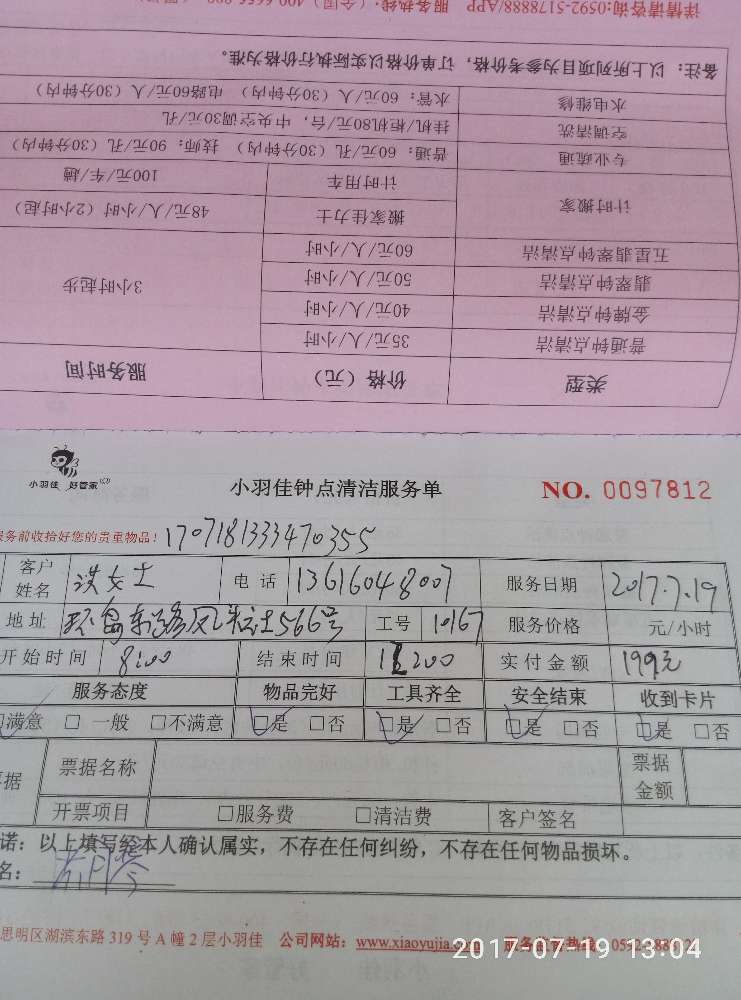 详情请咨询:0592-5178888/APP 服务热线:(全国)400-
备注：以上所列项目为参考价格，订单价格以实际执行价格为准。
水电维修 水管：60元/人（30分钟内） 电路60元/人（30分钟内）
空调清洗 挂机/柜机80元/台，中央空调30元/孔
专业疏通 普通：60元/孔（30分钟内） 技师：90元/孔（30分钟内）
计时搬家 计时用车 100元/车/趟
搬家佳力士 48元/人/小时（2小时起）
五星翡翠钟点清洁 60元/人/小时
翡翠钟点清洁 50元/人/小时 3小时起步
金牌钟点清洁 40元/人/小时
普通钟点清洁 35元/人/小时
类型 价格（元） 服务时间
小羽佳 好管家
小羽佳钟点清洁服务单
NO. 0097812
服务前收拾好您的贵重物品！ 1707181333470355
客户姓名 洪女士 电话 13616048007 服务日期 2017.7.19
地址 环岛东路凤 566号 工号 10167 服务价格 元/小时
开始时间 8:00 结束时间 1200 实付金额 199元
服务态度 物品完好 工具齐全 安全结束 收到卡片
□满意 □ 一般 □不满意 □是 □否 □是 □否 □是 □否 □是 □否
据 票据名称 票据金额
开票项目 □服务费 □清洁费 客户签名
诺：以上填写经本人确认属实，不存在任何纠纷，不存在任何物品损坏。
名：
思明区湖滨东路 319 号 A 幢 2 层小羽佳 公司网站：www.xiaoyujia.com 服务监督热线:0592-
2017-07-19 13:04